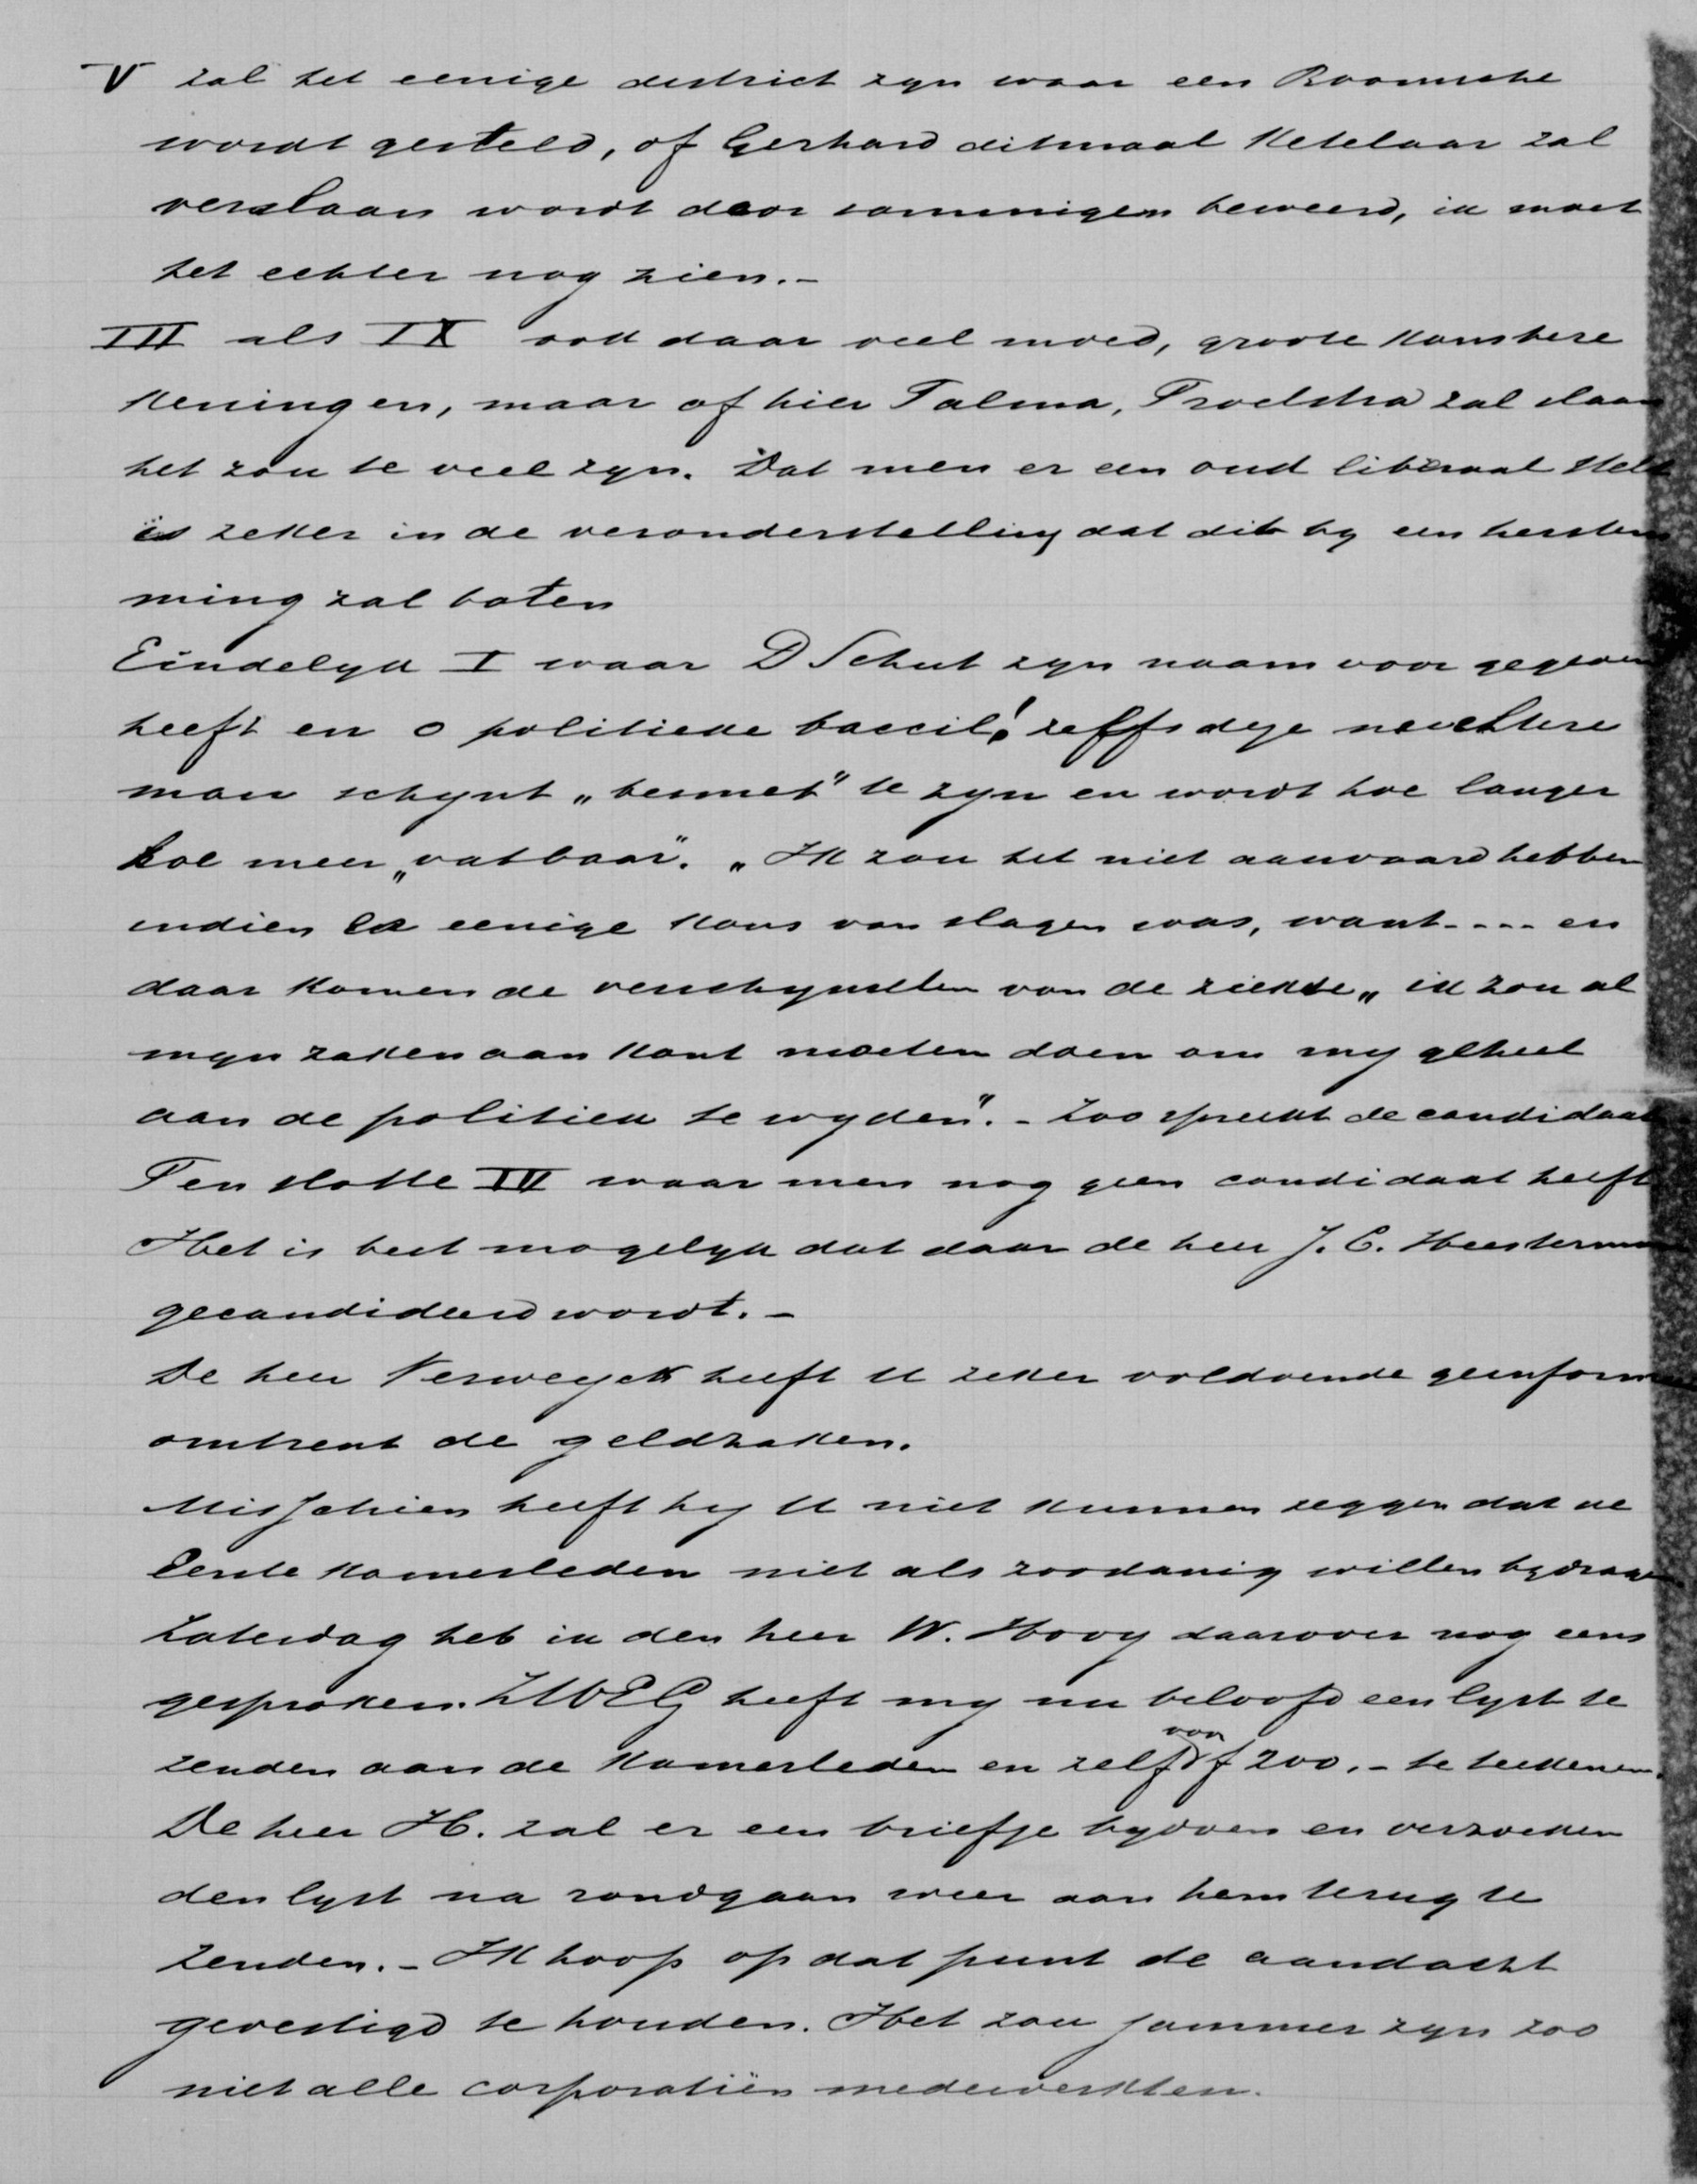 V zal het eenige district zyn waar een Roomsche
wordt gesteld, of Gerhard ditmaal Ketelaar zal
verslaan wordt door sommigen beweerd, ik moet
het echter nog zien. -
III als IX ook daar veel moed, groote kansbere
keningen, maar of hier Talma, Troelstra zal slaan
het zou te veel zyn. Dat men er een oud liberaal stelt
is zeker in de veronderstelling dat dit by een herstem
ming zal baten
Eindelyk I waar D Schut zyn naam voor gegeven
heeft en o politieke baccil! zelfs deze nuchtere
man schynt „besmet" te zyn en wordt hoe langer
hoe meer „vatbaar". „Ik zou het niet aanvaard hebben
indien er eenige kans van slagen was, want.... en
daar komen de verschynselen van de ziekte „ik zou al
myn zaken aan kant moeten doen om my geheel
aan de politiek te wyden". - Zoo spreekt de candidaat
Ten slotte IV waar men nog geen candidaat heeft
Het is best mogelyk dat daar de heer J. C. Heesterman
gecandideerd wordt. -
De heer Verweyck heeft U zeker voldoende geinform
omtrent de geldzaken.
Misschien heeft hy U niet kunnen zeggen dat de
Eerste Kamerleden niet als zoodanig willen bydragen
Zaterdag heb ik den heer W. Hovy daarover nog eens
gesproken. ZWEG heeft my nu beloofd een lyst te
zenden aan de Kamerleden en zelf voor f 200.- te teekenen.
De heer H. zal er een briefje bydoen en verzoeken
den lyst na rondgaan weer aan hem terug te
zenden. - Ik hoop op dat punt de aandacht
gevestigd te houden. Het zou jammer zyn zoo
niet alle corporatiën medewerkten.